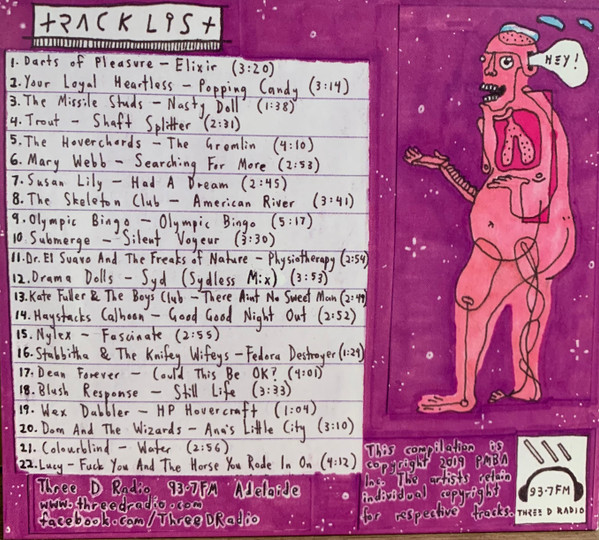 TRACK LIST
1. Darts of Pleasure – Elixir (3:20)
2. Your Loyal Heartless – Popping Candy (3:14)
3. The Missile Studs – Nasty Doll (1:38)
4. Trout – Shaft Splitter (2:31)
5. The Hoverchords – The Gromlin (4:10)
6. Mary Webb – Searching For More (2:53)
7. Susan Lily – Had A Dream (2:45)
8. The Skeleton Club – American River (3:41)
9. Olympic Bingo – Olympic Bingo (5:17)
10. Submerge – Silent Voyeur (3:30)
11. Dr. El Suavo And The Freaks of Nature – Physiotherapy (2:54)
12. Drama Dolls – Syd (Sydless Mix) (3:53)
13. Kate Fuller & The Boys Club – There Aint No Sweet Man (2:49)
14. Haystacks Calhoon – Good Good Night Out (2:52)
15. Nylex – Fascinate (2:55)
16. Stabbitha & The Knifey Wifeys – Fedora Destroyer (1:29)
17. Dean Forever – Could This Be OK? (4:01)
18. Blush Response – Still Life (3:33)
19. Wax Dabbler – HP Hovercraft (1:04)
20. Dom And The Wizards – Ana's Little City (3:10)
21. Colourblind – Water (2:56)
22. Lucy – Fuck You And The Horse You Rode In On (4:12)
Three D Radio 93.7FM Adelaide
www.threedradio.com
facebook.com/ThreeDRadio
HEY!
This compilation is
copyright 2019 PMBA
Inc. The artists retain
individual copyright
for respective tracks.
93.7FM
THREE D RADIO